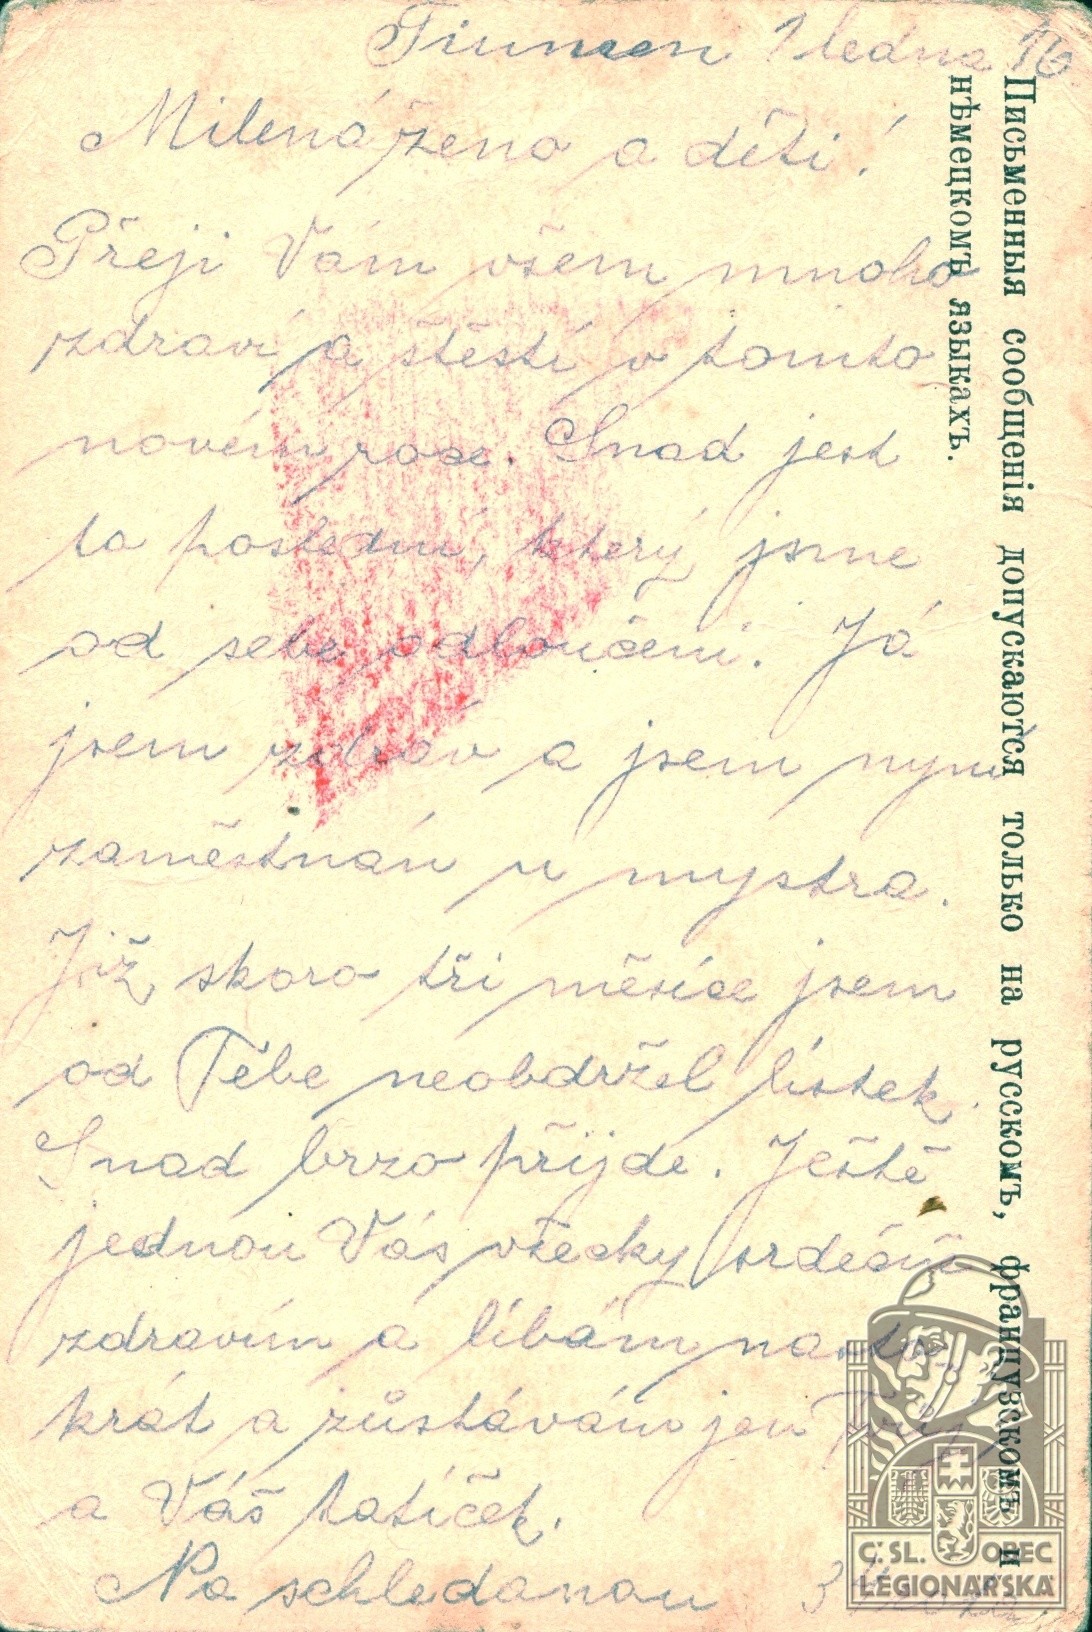 Tiumen 1 ledna 16
Milená ženo a děti!
Přeji Vám všem mnoho
zdraví a štěstí v tomto
novém roce. Snad jest
to poslední, který jsme
od sebe odloučeni. Já
jsem zdráv a jsem nyní
zaměstnán u mystra.
Již skoro tři měsíce jsem
od Tebe neobdržel lístek.
Snad brzo přijde. Ještě
jednou Vás všecky srdečně
zdravím a líbám na sto
krát a zůstávám jen Tvůj
a Váš tatíček.
Na schledanou
Письменныя сообщенія допускаются только на русскомъ, французскомъ и
нѣмецкомъ языкахъ.
Č. SL. OBEC
LEGIONÁŘSKÁ